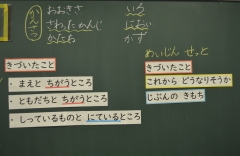 かんさつ
おおきさ
さわったかんじ
かたち
いろ
におい
かず
きづいたこと
・まえと ちがうところ
・ともだちと ちがうところ
・しっているものと にているところ
めいじん せっと
きづいたこと
これから どうなりそうか
じぶんの きもち